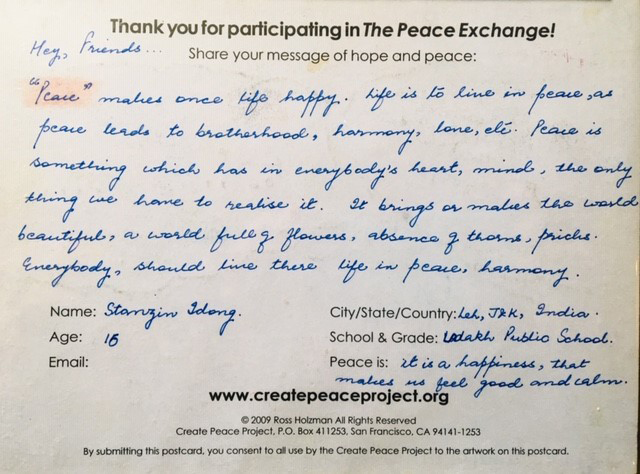 Thank you for participating in The Peace Exchange!
Hey, Friends...
Share your message of hope and peace:
"Peace" makes once life happy. Life is to live in peace, as
peace leads to brotherhood, harmony, love, etc. Peace is
something which has in everybody's heart, mind, the only
thing we have to realise it. It brings or makes the world
beautiful, a world full of flowers, absence of thorns, pricks.
Everybody, should live there life in peace, harmony.
Name: Stanzin Idong.
City/State/Country: Leh, J&K, India.
Age: 16
School & Grade: Ladakh Public School.
Email:
Peace is: it is a happiness, that
makes us feel good and calm.
www.createpeaceproject.org
© 2009 Ross Holzman All Rights Reserved
Create Peace Project, P.O. Box 411253, San Francisco, CA 94141-1253
By submitting this postcard, you consent to all use by the Create Peace Project to the artwork on this postcard.